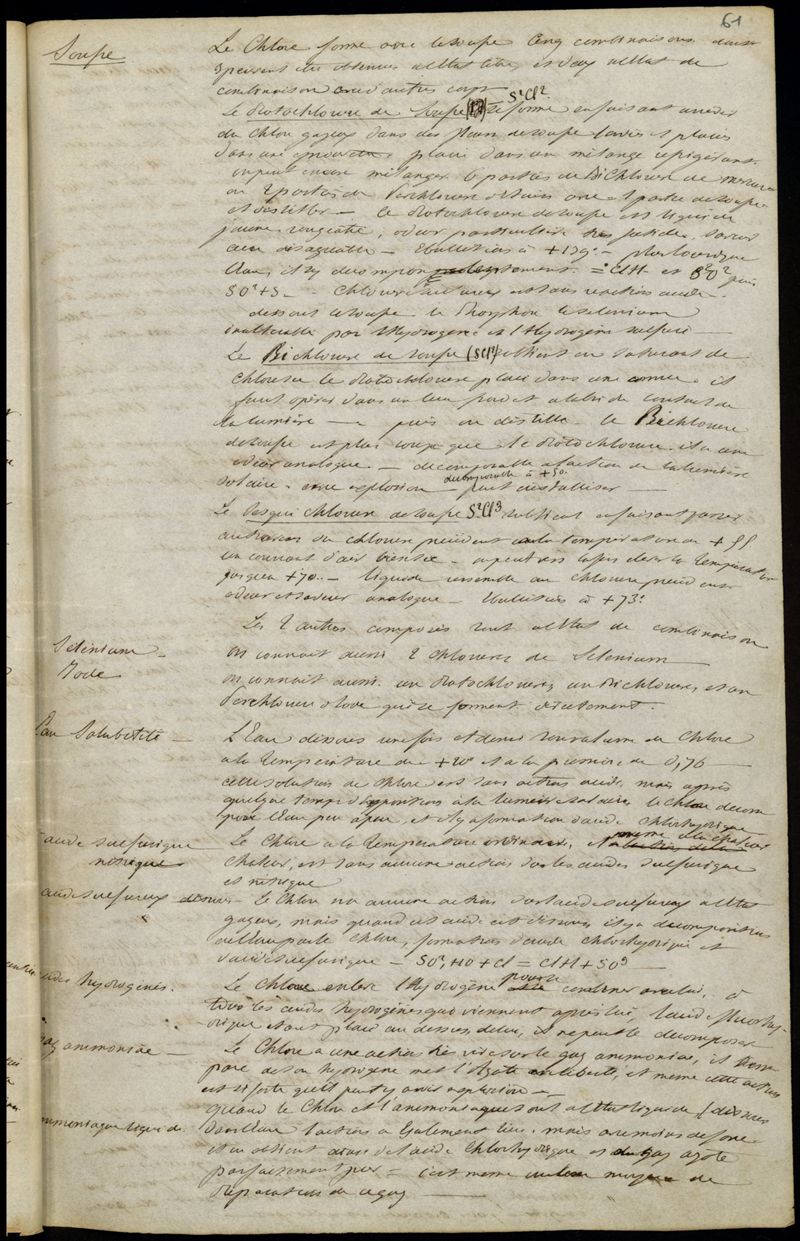 61
Soufre
Le Chlore forme avec le soufre Cinq combinaisons dont
3 peuvent être obtenues à l'état libre et deux à l'état de
combinaison avec d'autres corps
Le Protochlorure de Soufre S²Cl² se forme en faisant arriver
du Chlore gazeux dans des fleurs de soufre lavées et placées
dans une éprouvette placée dans un mélange réfrigérant
on peut encore mélanger 6 parties de Bichlorure de mercure
ou 2 parties de Perchlorure d'étain avec 1 partie de soufre
et distiller — Le Protochlorure de soufre est liquide
jaune rougeâtre, odeur particulière très fétide, saveur
désagréable — Ebullition à +139° — plus lourd que
l'Eau, il s'y décompose = ClH et S²O² puis
SO²+S — Chlorure est sans réaction acide
dissout le soufre le Phosphore le selenium
inaltérable par l'Hydrogène et l'Hydrogène sulfuré —
Le Bichlorure de soufre (SCl²) s'obtient en saturant de
Chlore le Protochlorure placé dans une cornue. il
faut opérer dans un lieu froid et à l'abri du contact de
la lumière — puis on distille. le Bichlorure
de soufre est plus rouge que le Protochlorure. il a une
odeur analogue — décomposable à l'action de la lumière
décomposable à +50.
solaire avec explosion — peut cristalliser —
Le Sesqui Chlorure de soufre S²Cl³ s'obtient en faisant passer
au travers du chlorure précédent à la température de +55
un courant d'air — on peut élever la température
jusqu'à +70 — liquide ressemble au Chlorure précédent
odeur et saveur analogue — Ebullition à +73°
Les 2 autres composés sont à l'état de combinaison
Selenium — On connait aussi 2 chlorures de Selenium —
Iode — On connait aussi un Protochlorure, un Bichlorure, et un
Perchlorure d'Iode qui se forment directement.
Eau Solubilité — L'Eau dissout une fois et demie son volume de Chlore
à la température de +20° et à la pression de 0,76 —
cette solution de Chlore est sans action acide, mais après
quelque temps d'exposition à la lumière solaire, le chlore décompose
l'Eau peu à peu, et il y a formation d'acide chlorhydrique
acide sulfurique Le Chlore à la température ordinaire, et même à la
nitrique chaleur, est sans aucune action sur les acides sulfurique
et nitrique
acide sulfureux dissous — Le Chlore n'a aucune action sur l'acide sulfureux à l'état
gazeux, mais quand cet acide est dissous, il y a décomposition
de l'Eau par le Chlore, formation d'acide chlorhydrique et
d'acide sulfurique — SO², HO + Cl = ClH + SO³
acides hydrogénés. Le Chlore enlève l'Hydrogène pour se combiner avec lui, à
tous les acides hydrogénés qui viennent après lui, l'acide fluorhy-
drique étant placé au dessus de lui, il ne peut le décomposer
gaz ammoniac — Le Chlore a une action très vive sur le gaz ammoniac, il s'empare
de son hydrogène met l'Azote en liberté, et même cette action
est si forte qu'il peut y avoir explosion —
ammoniaque liquide Quand le Chlore et l'ammoniaque sont à l'état liquide (dissous
dans l'eau) l'action a également lieu, mais avec moins de force
et on obtient ainsi de l'acide Chlorhydrique et du gaz azote
parfaitement pur — c'est même un moyen de
préparation de ce gaz —